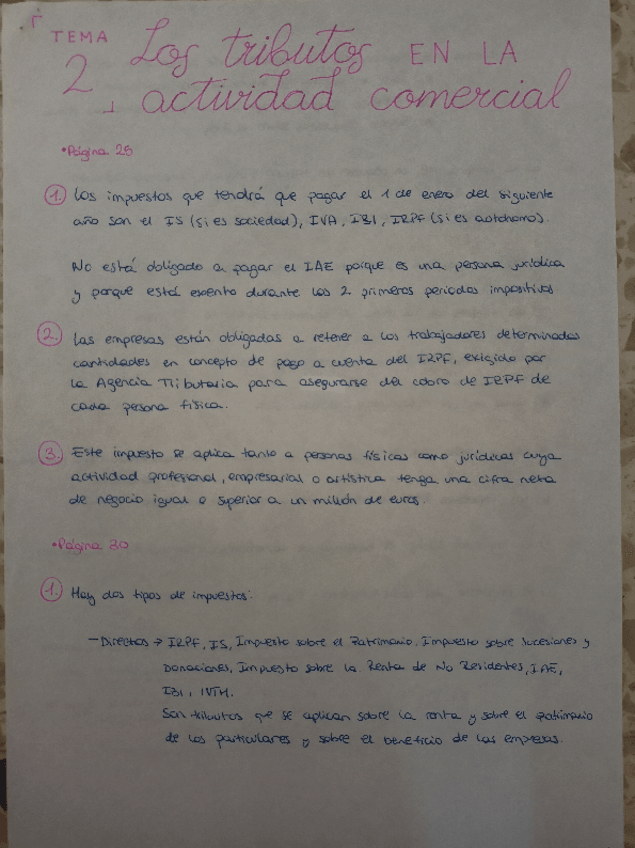 TEMA
2 Los tributos EN LA
actividad comercial
•Página 25
1. Los impuestos que tendrá que pagar el 1 de enero del siguiente
año son el IS (si es sociedad), IVA, IBI, IRPF (si es autónomo).
No está obligado a pagar el IAE porque es una persona jurídica
y porque está exento durante los 2 primeros periodos impositivos
2. Las empresas están obligadas a retener a los trabajadores determinadas
cantidades en concepto de pago a cuenta del IRPF, exigido por
la Agencia Tributaria para asegurarse del cobro de IRPF de
cada persona física.
3. Este impuesto se aplica tanto a personas físicas como jurídicas cuya
actividad profesional, empresarial o artística tenga una cifra neta
de negocio igual o superior a un millón de euros.
•Página 30
1. Hay dos tipos de impuestos:
– Directos → IRPF, IS, Impuesto sobre el Patrimonio, Impuesto sobre Sucesiones y
Donaciones, Impuesto sobre la Renta de No Residentes, IAE,
IBI, IVTM.
Son tributos que se aplican sobre la renta y sobre el patrimonio
de los particulares y sobre el beneficio de las empresas.